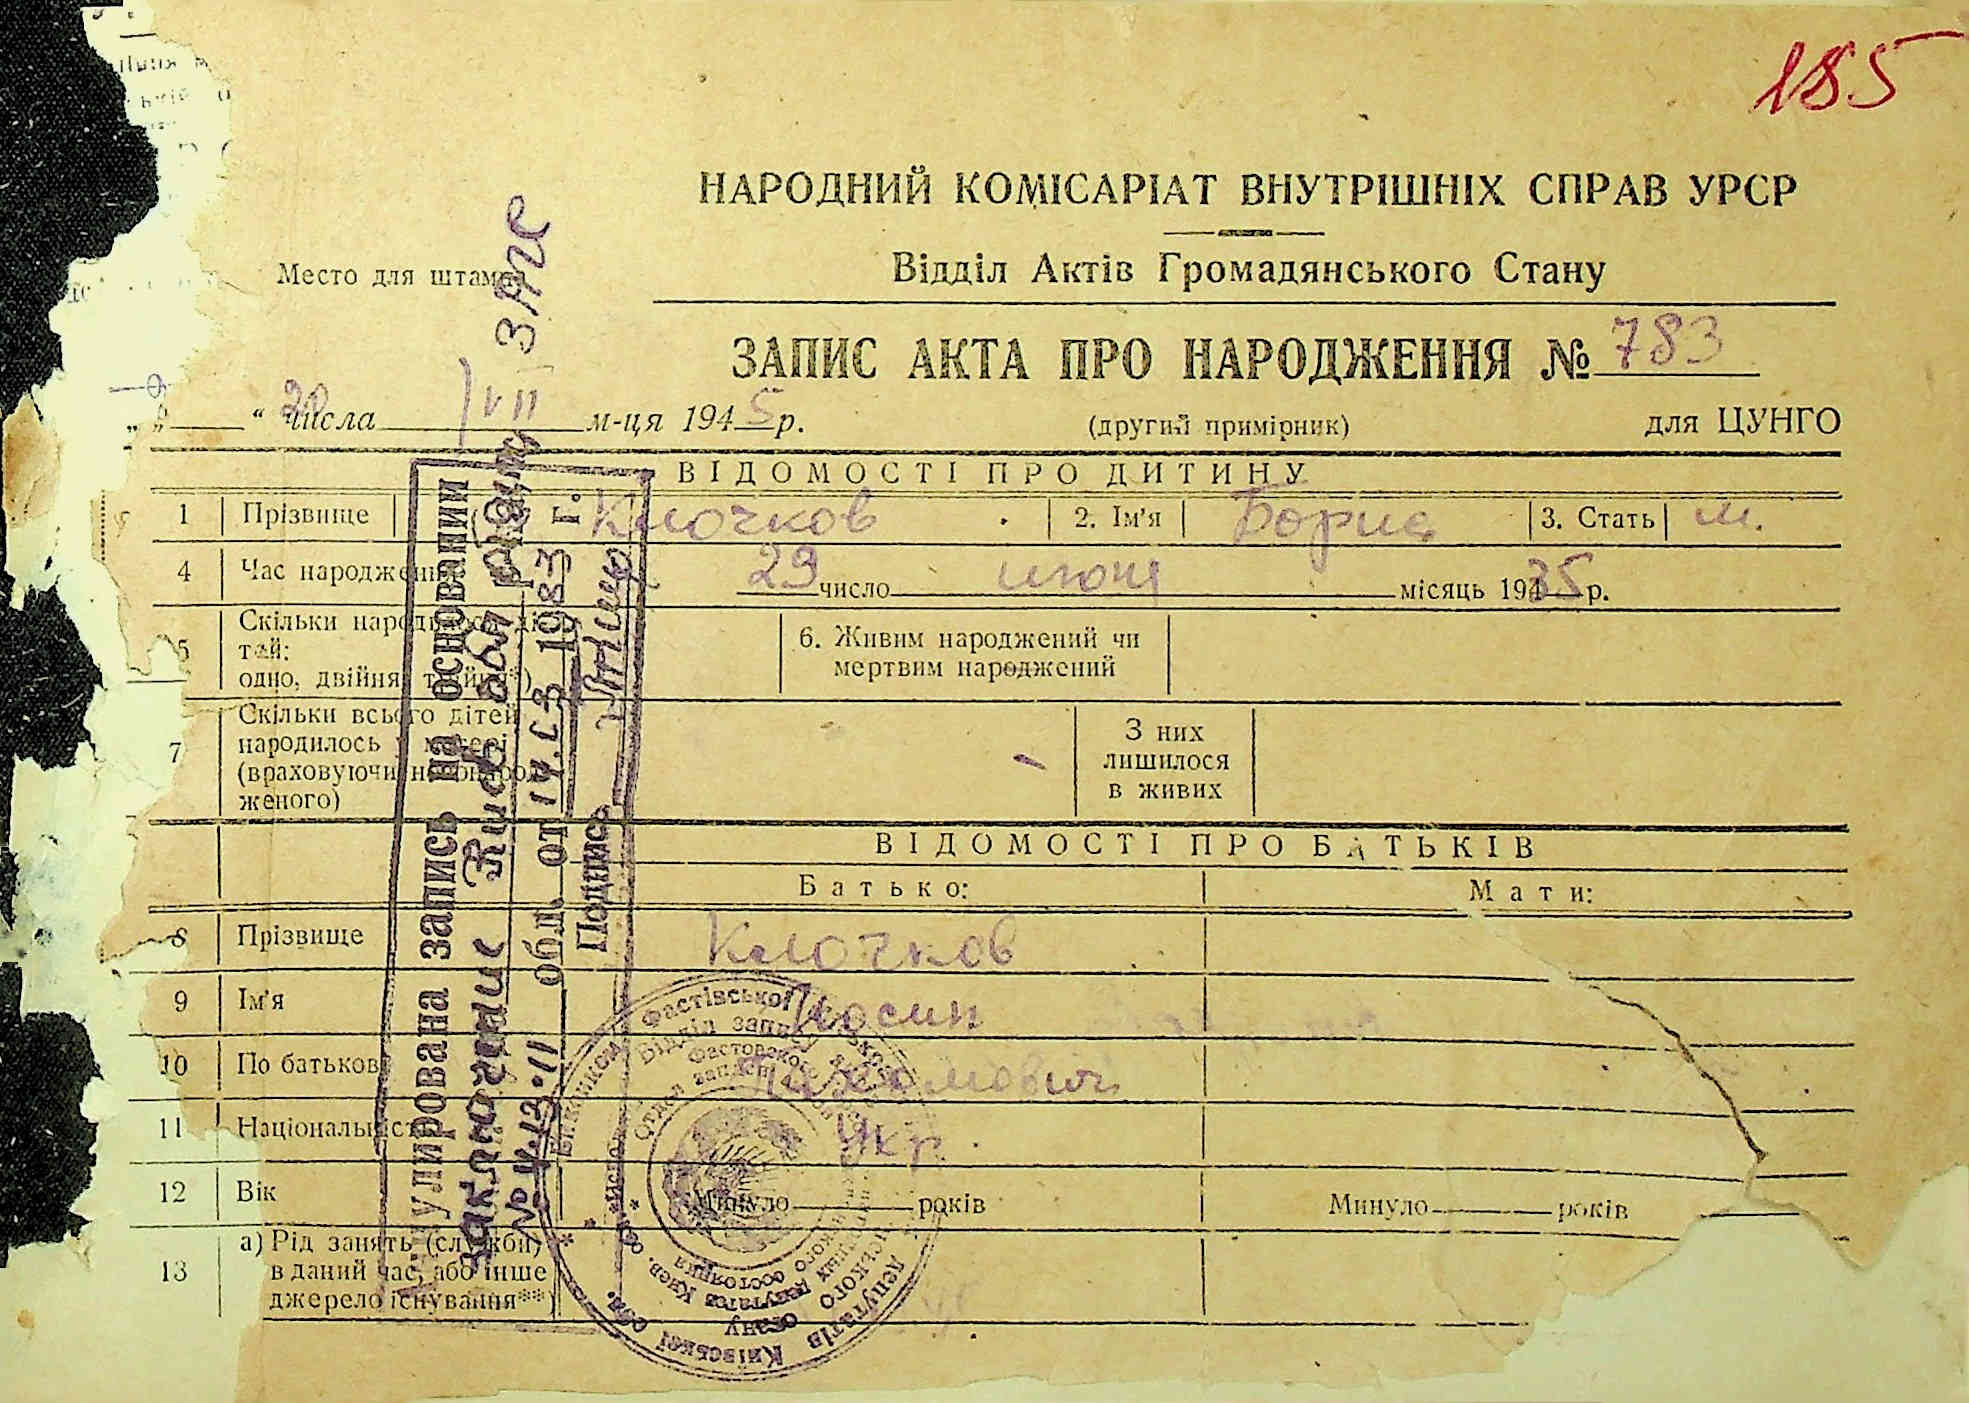 185
НАРОДНИЙ КОМІСАРІАТ ВНУТРІШНІХ СПРАВ УРСР
Место для штампа
Відділ Актів Громадянського Стану
ЗАПИС АКТА ПРО НАРОДЖЕННЯ № 783
„ “ 20 числа VII м-ця 1945 р.
(другий примірник)
для ЦУНГО
ВІДОМОСТІ ПРО ДИТИНУ
1 Прізвище Клочков 2. Ім'я Борис 3. Стать м.
4 Час народження 29 число июня місяць 1935 р.
5 Скільки народилося ді-
тей:
одно, двійня, трійня*)
6. Живим народжений чи
мертвим народжений
7 Скільки всього дітей
народилось у матері
(враховуючи
женого)
З них
лишилося
в живих
ВІДОМОСТІ ПРО БАТЬКІВ
Батько: Мати:
8 Прізвище Клочков
9 Ім'я
10 По батькові Пахомович
11 Національність Укр.
12 Вік Минуло років Минуло років
13 а) Рід занять (служби)
в даний час, або інше
джерело існування**)
Аннулирована запись на основании
заключения Киев обл ЗАГС
№ 4.13.11 обл. от 14.03 1983 г.
Подпись
Фастівської
Відділ запису
Отдел записи
Київської обл.